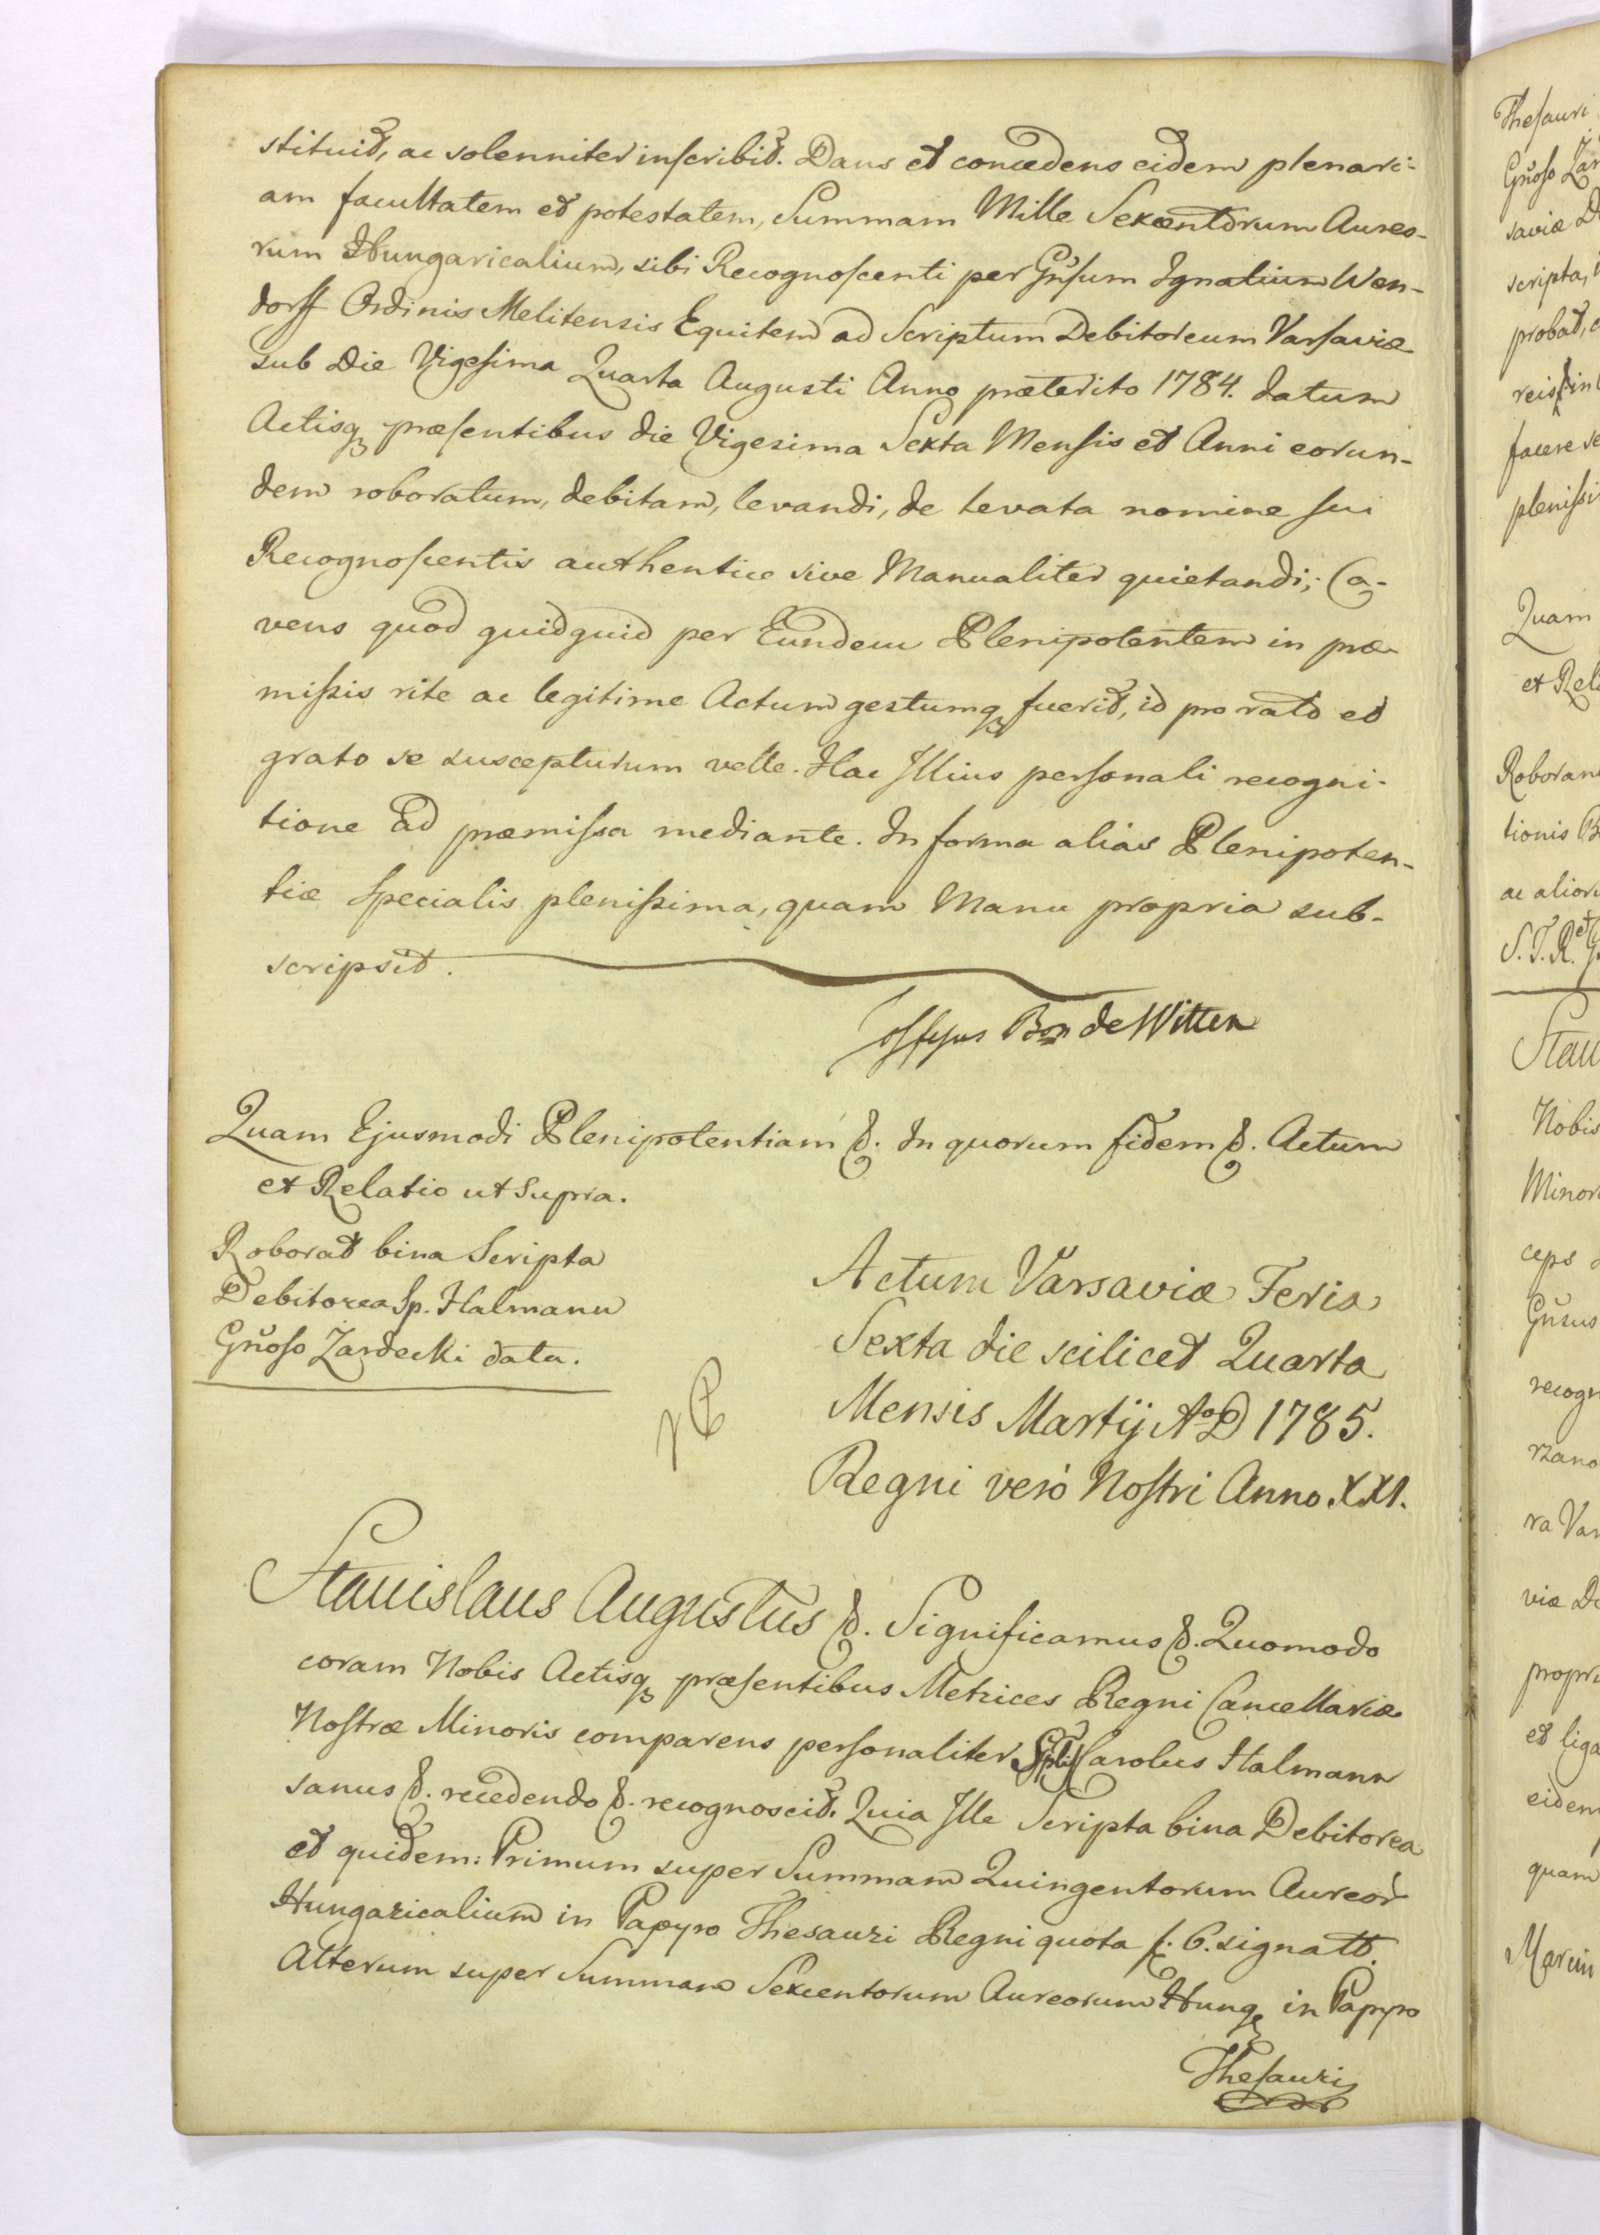 stituit, ac solenniter inscribit. Dans et concedens eidem plenari-
am facultatem et potestatem, Summam Mille Sexcentorum Aureo-
rum Hungaricalium, sibi Recognoscenti per Gnsum Ignatium Wen-
dorff Ordinis Melitensis Equitem ad Scriptum Debitoreum Varsaviæ
sub Die Vigesima Quarta Augusti Anno præterito 1784. datum
Actisq præsentibus die Vigesima Sexta Mensis et Anni eorun-
dem roboratum, debitam, levandi, de levata nomine sui
Recognoscentis authentice sive Manualiter quietandi; Ca-
vens quod quidquid per Eundem Plenipotentem in præ-
missis rite ac legitime Actum gestumq fuerit, id pro rato et
grato se suscepturum velle. Hac Illius personali recogni-
tione ad præmissa mediante. In forma alias Plenipoten-
tiæ specialis plenissima, quam Manu propria sub-
scripsit.
Bon de Witten
Quam Ejusmodi Plenipotentiam &. In quorum fidem &. Actum
et Relatio ut supra.
Roborat bina Scripta
Debitorea Sp. Halmann
Gnoso Zardecki data.
Actum Varsaviæ Feria
Sexta die scilicet Quarta
Mensis Martij AoD 1785.
Regni veró Nostri Anno XXI.
Stanislaus Augustus &. Significamus &. Quomodo
coram Nobis Actisq præsentibus Metrices Regni Cancellariæ
Nostræ Minoris comparens personaliter Carolus Halmann
sanus &. recedendo &. recognoscit. Quia Ille Scripta bina Debitorea
et quidem: Primum super Summam Quingentorum Aureor
Hungaricalium in Papyro Thesauri Regni quota f. 6. signatt.
Alterum super Summam Sexcentorum Aureorum Hung in Papyro
Thesauri